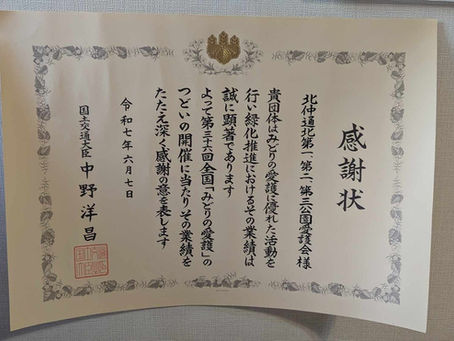 感謝状
北仲通北第一、第二、第三公園愛護会 様
貴団体はみどりの愛護に優れた活動を
行い緑化推進におけるその業績は
誠に顕著であります
よって第三十六回全国「みどりの愛護」の
つどいの開催に当たりその業績を
たたえ深く感謝の意を表します
令和七年六月七日
国土交通大臣 中野洋昌